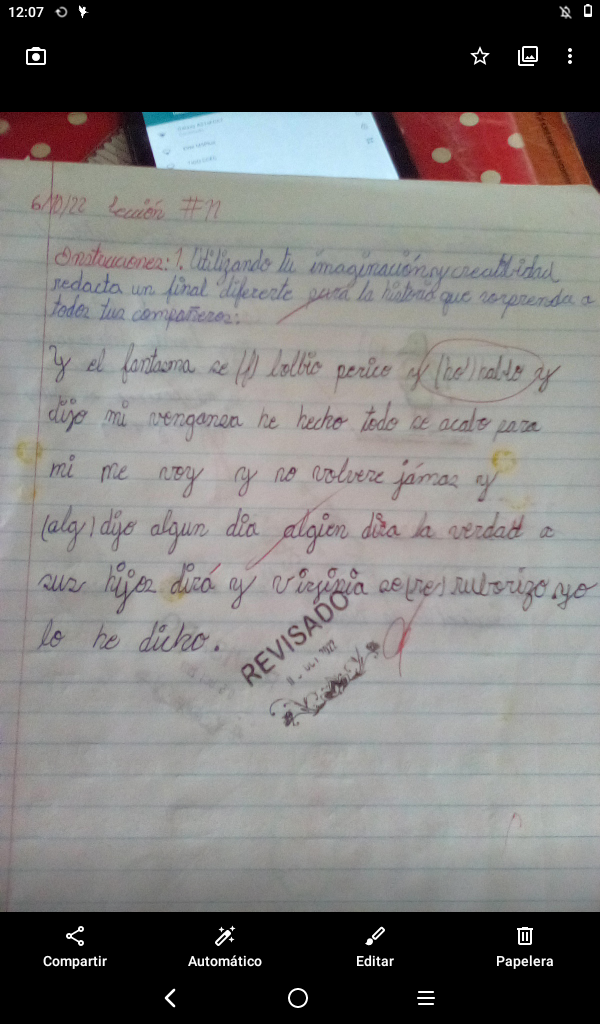 12:07
6/10/22 Lección #11
Instrucciones: 1. Utilizando tu imaginación y creatividad
redacta un final diferente para la historia que sorprenda a
todos tus compañeros:
Y el fantasma se (f) bolbio perico y (ho) hablo y
dijo mi venganza he hecho todo se acabo para
mi me voy y no volvere jámas y
(alg) dijo algun dia algien dira la verdad a
sus hijos dirá y Virginia se (re) ruborizo yo
lo he dicho.
REVISADO
Compartir
Automático
Editar
Papelera